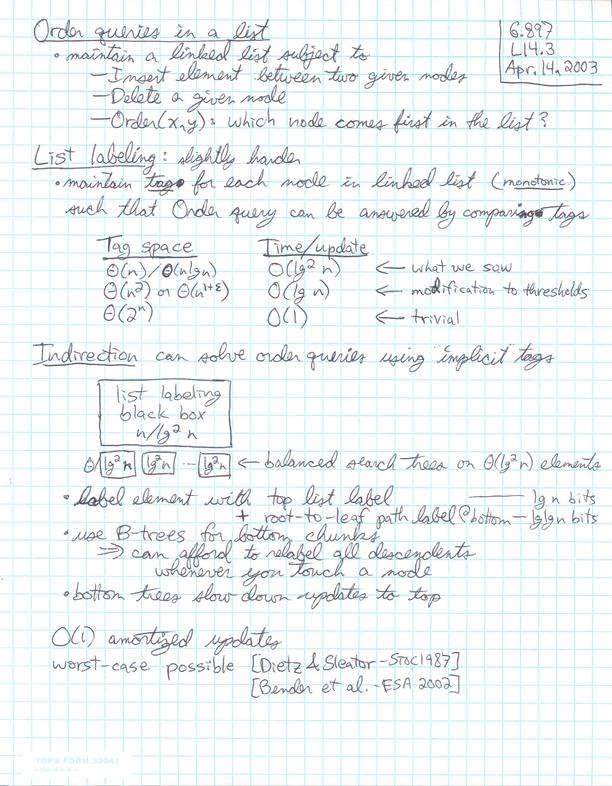 Order queries in a list
6.897
L14.3
Apr. 14, 2003
• maintain a linked list subject to
— Insert element between two given nodes
— Delete a given node
— Order(x,y): which node comes first in the list?
List labeling: slightly harder
• maintain tag for each node in linked list (monotonic)
such that Order query can be answered by comparing tags
Tag space Time/update
Θ(n)/Θ(n lg n) O(lg² n) ← what we saw
Θ(n²) or Θ(n^{1+ε}) O(lg n) ← modification to thresholds
Θ(2ⁿ) O(1) ← trivial
Indirection can solve order queries using "implicit" tags
list labeling
black box
n/lg² n
Θ( lg² n lg² n ... lg² n ← balanced search trees on Θ(lg² n) elements
• label element with top list label — lg n bits
+ root-to-leaf path label @ bottom — lg lg n bits
• use B-trees for bottom chunks
⇒ can afford to relabel all descendents
whenever you touch a node
• bottom trees slow down updates to top
O(1) amortized updates
worst-case possible [Dietz & Sleator - STOC 1987]
[Bender et al. - ESA 2002]
TOPS FORM 33041